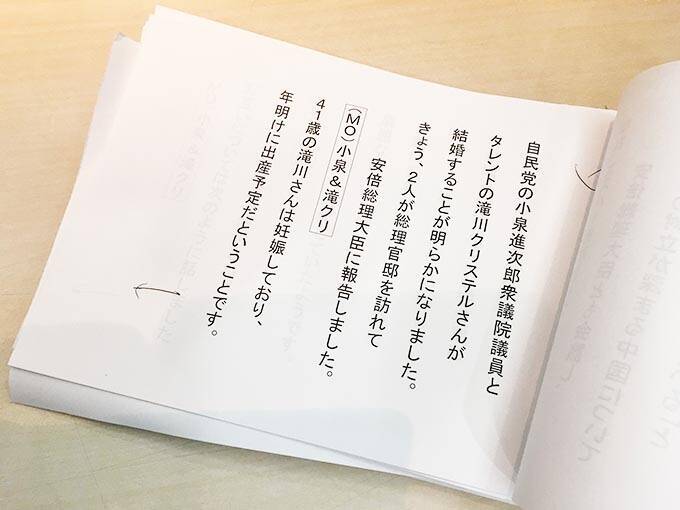 自民党の小泉進次郎衆議院議員と
タレントの滝川クリステルさんが
結婚することが明らかになりました。
きょう、2人が総理官邸を訪れて
安倍総理大臣に報告しました。
（MO）小泉＆滝クリ
41歳の滝川さんは妊娠しており、
年明けに出産予定だということです。